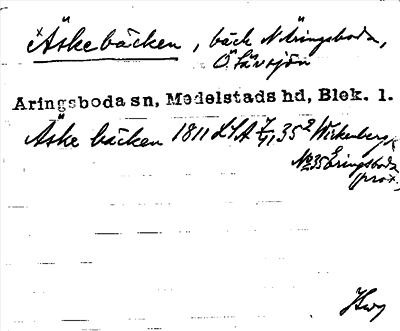 ×Äskebäcken, bäck N Äringsboda,
Ö Sävsjön
Aringsboda sn, Medelstads hd, Blek. l.
Äske bäcken 1811 LSA 35² Wirkenberg,
No 35 Eringsboda